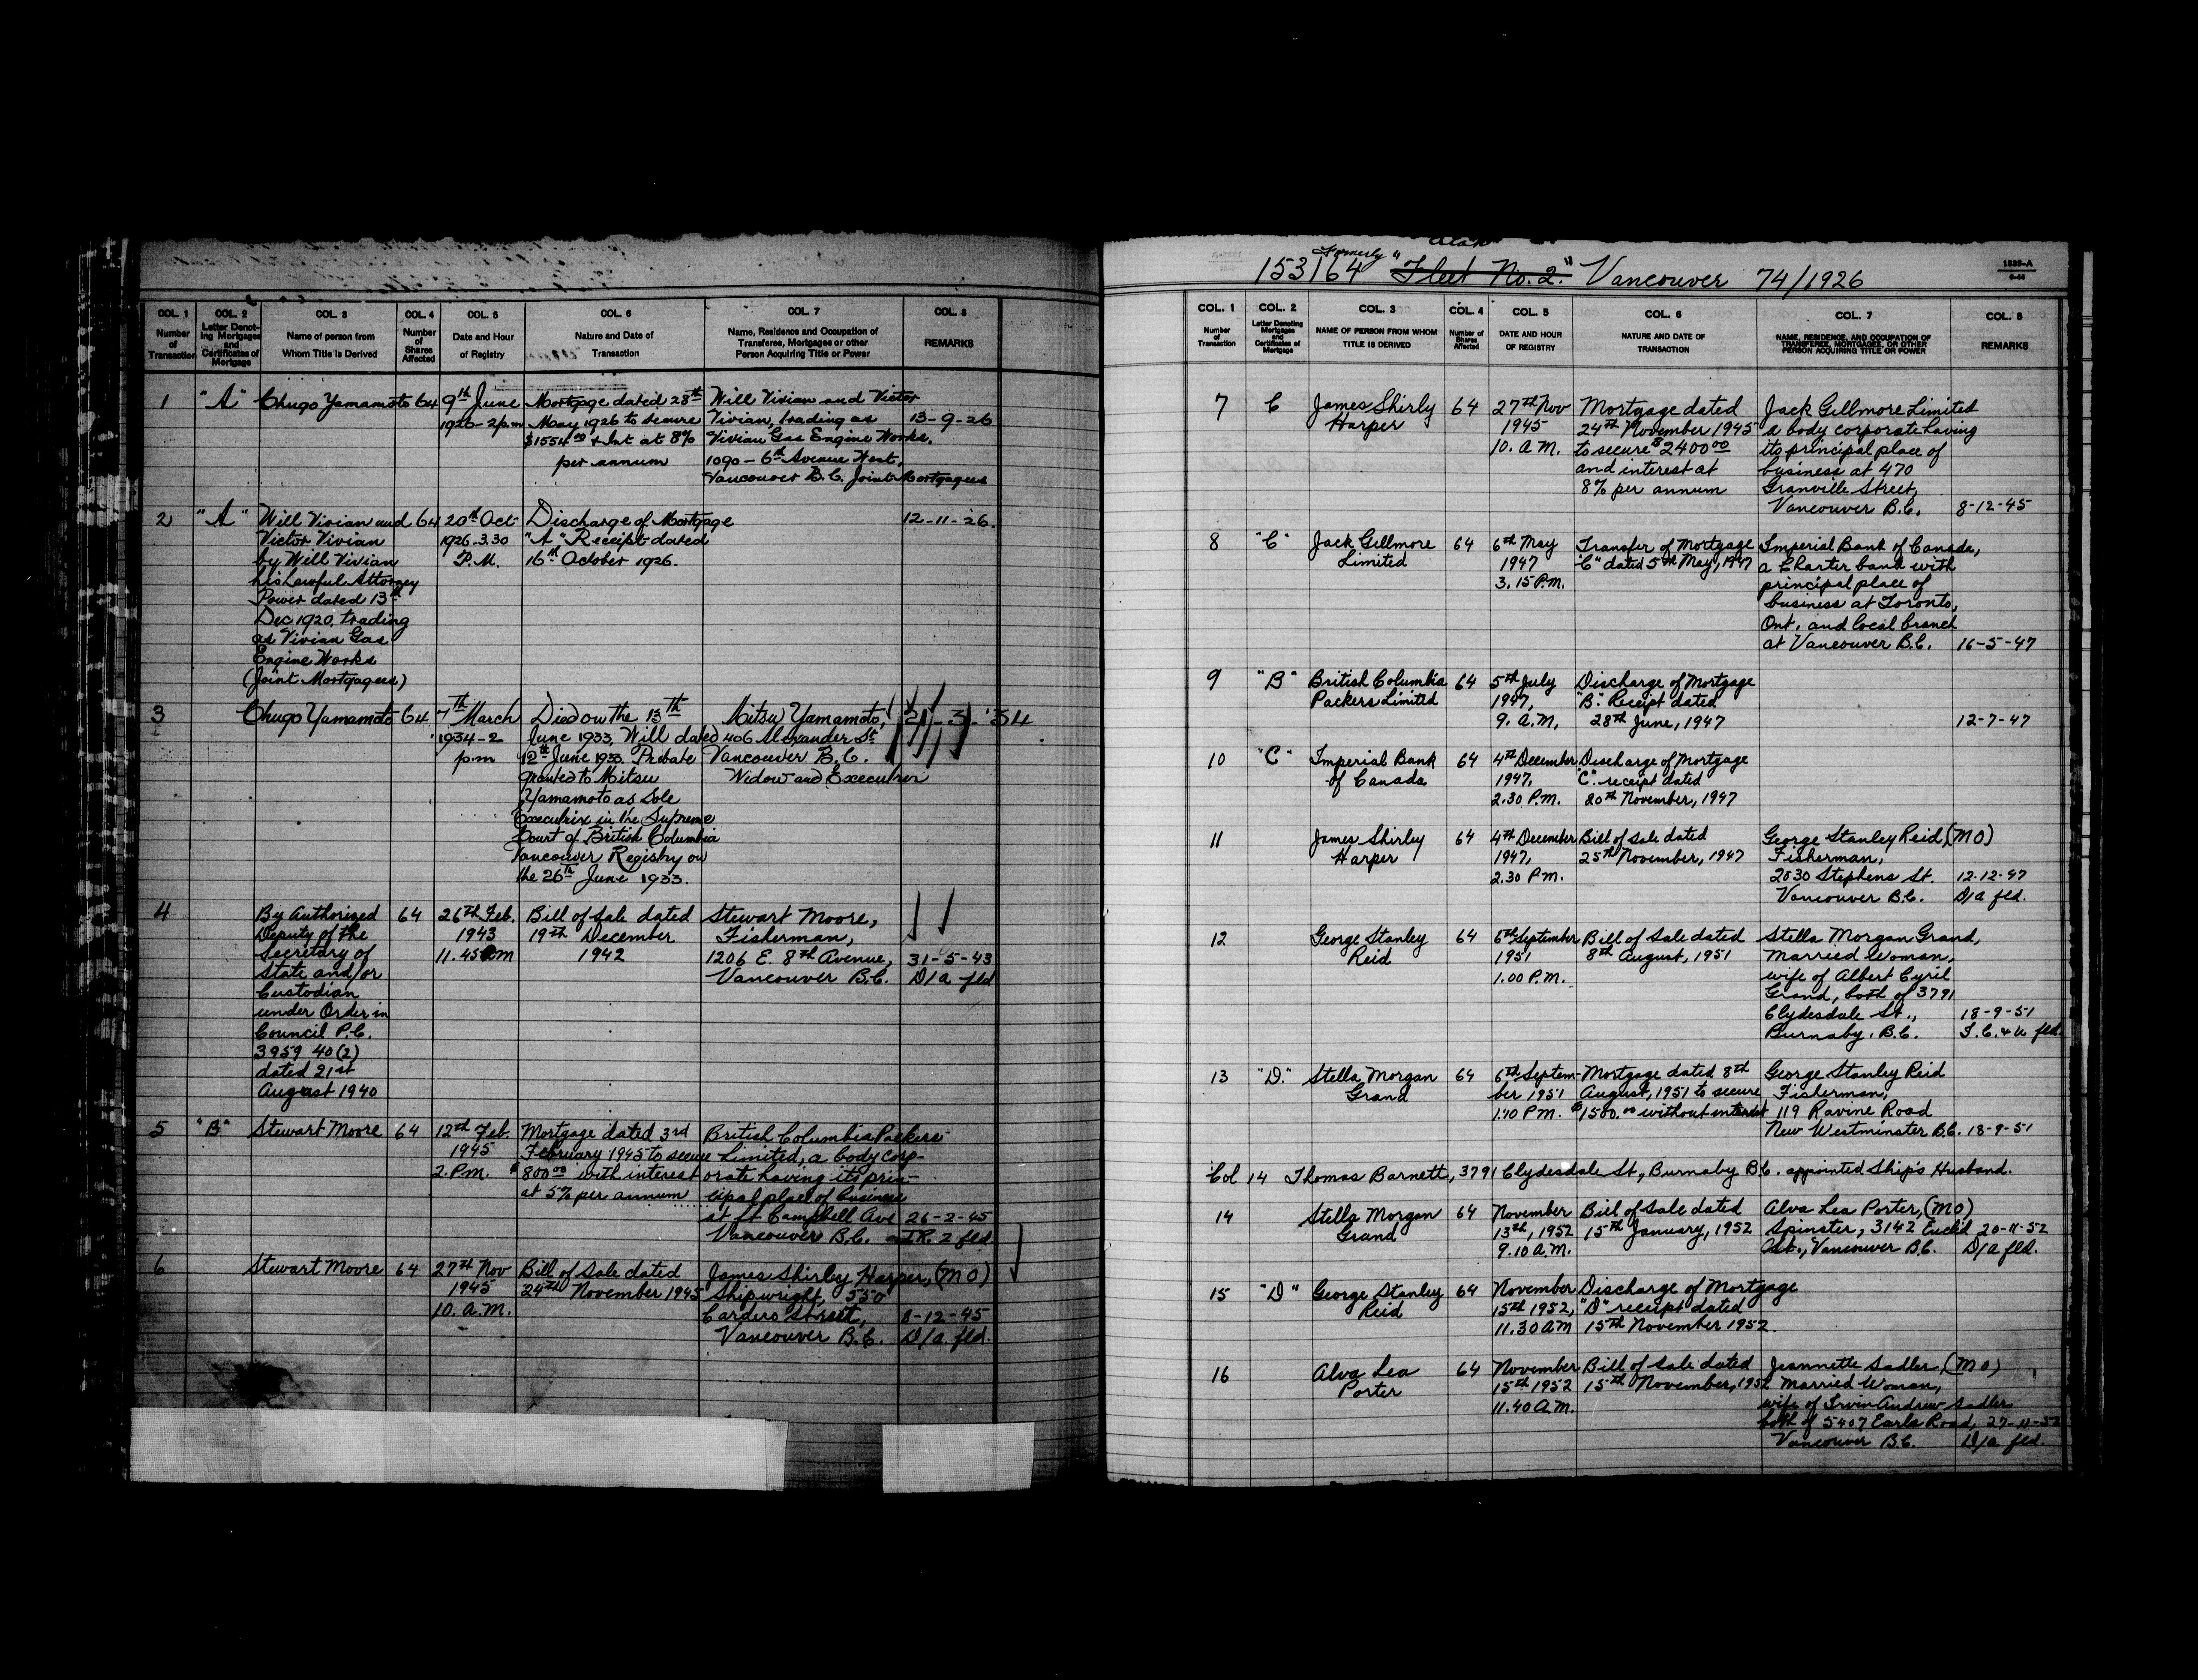 COL. 1
Number
of
Transaction
COL. 2
Letter Denot-
ing Mortgages
and
Certificates of
Mortgage
COL. 3
Name of person from
Whom Title is Derived
COL. 4
Number
of
Shares
Affected
COL. 5
Date and Hour
of Registry
COL. 6
Nature and Date of
Transaction
COL. 7
Name, Residence and Occupation of
Transferee, Mortgagee or other
Person Acquiring Title or Power
COL. 8
REMARKS
1 "A" Chugo Yamamoto 64 9th June Mortgage dated 28th Will Vivian and Victor
1926-2p.m May 1926 to secure Vivian, trading as 13-9-26
$1554.00 & Int at 8% Vivian Gas Engine Works,
per annum 1090 - 6th Avenue West,
Vancouver B.C. Joint Mortgagees
2 "A" Will Vivian and 64 20th Oct Discharge of Mortgage 12-11-26.
Victor Vivian 1926-3.30 "A" Receipt dated
by Will Vivian P.M. 16th October 1926.
his Lawful Attorney
Power dated 13th
Dec 1920, trading
as Vivian Gas
Engine Works
(Joint Mortgagees)
3 Chugo Yamamoto 64 7th March Died on the 13th Mitsu Yamamoto, 21-3-'34
1934-2 June 1933, Will dated 406 Alexander St.
p.m 12th June 1933. Probate Vancouver B.C.
granted to Mitsu Widow and Executrix
Yamamoto as Sole
Executrix in the Supreme
Court of British Columbia
Vancouver Registry on
the 26th June 1933.
4 By Authorized 64 26th Feb. Bill of Sale dated Stewart Moore,
Deputy of the 1943 19th December Fisherman,
Secretary of 11.45 am 1942 1206 E. 8th Avenue, 31-5-43
State and/or Vancouver B.C. D/a fld
Custodian
under Order in
Council P.C.
3959 40(2)
dated 21st
August 1940
5 "B" Stewart Moore 64 12th Feb. Mortgage dated 3rd British Columbia Packers
1945 February 1945 to secure Limited, a body corp-
2.P.M. $800.00 with interest orate having its prin-
at 5% per annum cipal place of business
at ft Campbell Ave 26-2-45
Vancouver B.C. I.R. 2 fld
6 Stewart Moore 64 27th Nov Bill of Sale dated James Shirley Harper, (MO)
1945 24th November 1945 Shipwright, 550
10. A.M. Cardero Street, 8-12-45
Vancouver B.C. D/a fld.
Formerly
153164 "Fleet No. 2." Vancouver 74/1926
1535-A
COL. 1
Number
of
Transaction
COL. 2
Letter Denoting
Mortgages
and
Certificates of
Mortgage
COL. 3
NAME OF PERSON FROM WHOM
TITLE IS DERIVED
COL. 4
Number of
Shares
Affected
COL. 5
DATE AND HOUR
OF REGISTRY
COL. 6
NATURE AND DATE OF
TRANSACTION
COL. 7
NAME, RESIDENCE, AND OCCUPATION OF
TRANSFEREE, MORTGAGEE, OR OTHER
PERSON ACQUIRING TITLE OR POWER
COL. 8
REMARKS
7 C James Shirly 64 27th Nov Mortgage dated Jack Gillmore Limited
Harper 1945 24th November 1945 a body corporate having
10. A.M. to secure $2400.00 its principal place of
and interest at business at 470
8% per annum Granville Street,
Vancouver B.C. 8-12-45
8 "C" Jack Gillmore 64 6th May Transfer of Mortgage Imperial Bank of Canada,
Limited 1947 "C" dated 5th May, 1947 a Charter bank with
3.15 P.M. principal place of
business at Toronto,
Ont. and local branch
at Vancouver B.C. 16-5-47
9 "B" British Columbia 64 5th July Discharge of Mortgage
Packers Limited 1947, "B". Receipt dated
9. A.M, 28th June, 1947 12-7-47
10 "C" Imperial Bank 64 4th December Discharge of Mortgage
of Canada 1947, "C" receipt dated
2.30 P.M. 20th November, 1947
11 James Shirley 64 4th December Bill of Sale dated George Stanley Reid, (MO)
Harper 1947, 25th November, 1947 Fisherman,
2.30 P.M. 2030 Stephens St. 12-12-47
Vancouver B.C. D/a fld.
12 George Stanley 64 6th September Bill of Sale dated Stella Morgan Grand,
Reid 1951 8th August, 1951 Married Woman,
1.00 P.M. wife of Albert Cyril
Grand, both of 3791
Clydesdale St., 18-9-51
Burnaby, B.C. fld.
13 "D." Stella Morgan 64 6th Septem- Mortgage dated 8th George Stanley Reid
Grand ber 1951 August, 1951 to secure Fisherman,
1.10 P.M. $1500.00 without interest 119 Ravine Road
New Westminster B.C. 18-9-51
Col 14 Thomas Barnett, 3791 Clydesdale St, Burnaby B.C. appointed Ship's Husband.
14 Stella Morgan 64 November Bill of Sale dated Alva Lea Porter, (MO)
Grand 13th, 1952 15th January, 1952 Spinster, 3142 Euclid 20-11-52
9.10 A.M. Vancouver B.C. D/a fld.
15 "D" George Stanley 64 November Discharge of Mortgage
Reid 15th 1952, "D" receipt dated
11.30 AM 15th November 1952.
16 Alva Lea 64 November Bill of Sale dated Jeannette Sadler (MO)
Porter 15th 1952 15th November, 1952 Married Woman,
11.40 A.M. wife of Irvin Andrew Sadler
both of 5407 Earls Road, 27-11-52
Vancouver B.C. D/a fld.